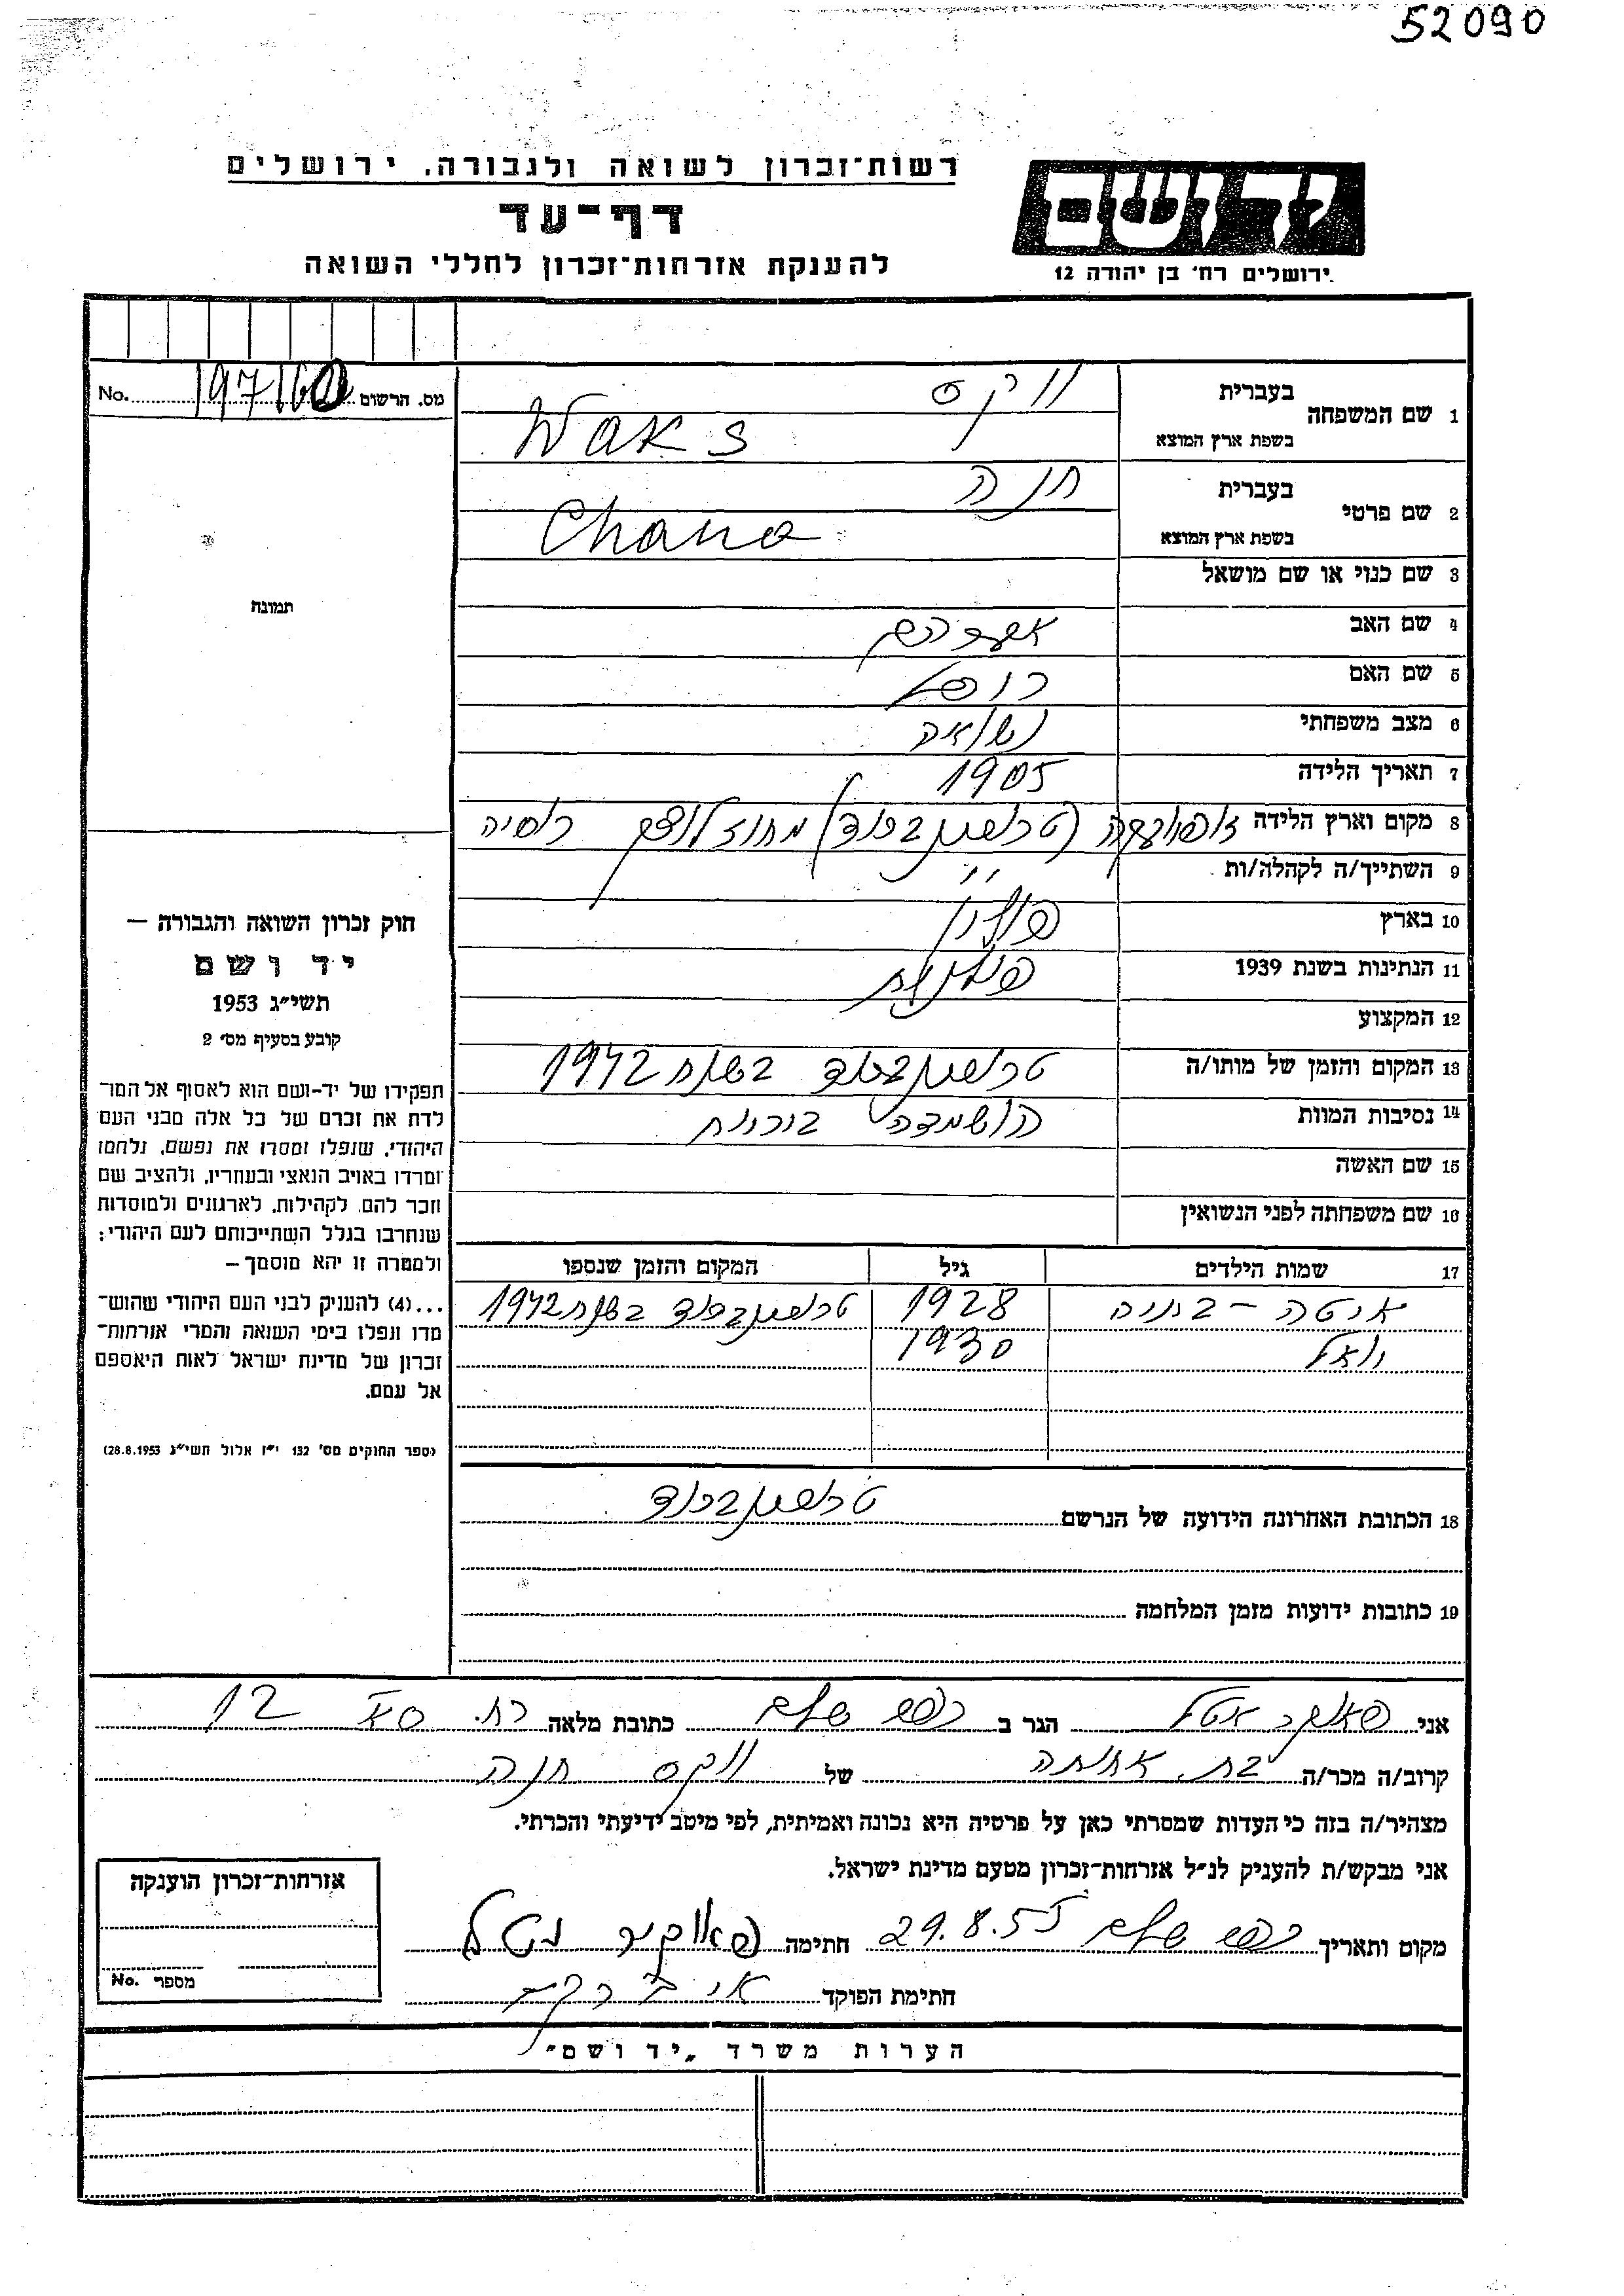 52090
רשות־זכרון לשואה ולגבורה, ירושלים
דף־עד
להענקת אזרחות־זכרון לחללי השואה
יד ושם
ירושלים רח' בן יהודה 12
מס. הרשום 197160 No.
1 שם המשפחה בעברית וקס
בשפת ארץ המוצא Waks
2 שם פרטי בעברית חנה
בשפת ארץ המוצא Chana
3 שם כנוי או שם מושאל
4 שם האב אברהם
5 שם האם
6 מצב משפחתי נשואה
7 תאריך הלידה 1905
8 מקום וארץ הלידה זופיובקה (טרכימברוד) מחוז לוצק רוסיה
9 השתייך/ה לקהלה/ות "
10 בארץ פולין
11 הנתינות בשנת 1939 פולנית
12 המקצוע
13 המקום והזמן של מותו/ה טרכימברוד בשנת 1942
14 נסיבות המוות הושמדה בוכנות
15 שם האשה
16 שם משפחתה לפני הנשואין
17 שמות הילדים גיל המקום והזמן שנספו
איטה - בתיה 1928 טרכימברוד בשנת 1942
יואל 1930
18 הכתובת האחרונה הידועה של הנרשם טרכימברוד
19 כתובות ידועות מזמן המלחמה
תמונה
חוק זכרון השואה והגבורה —
יד ושם
תשי"ג 1953
קובע בסעיף מס' 2
תפקידו של יד-ושם הוא לאסוף אל המו־
לדת את זכרם של כל אלה מבני העם
היהודי, שנפלו ומסרו את נפשם, נלחמו
ומרדו באויב הנאצי ובעוזריו, ולהציב שם
וזכר להם, לקהילות, לארגונים ולמוסדות
שנחרבו בגלל השתייכותם לעם היהודי;
ולמטרה זו יהא מוסמך —
...(4) להעניק לבני העם היהודי שהוש־
מדו ונפלו בימי השואה והמרי אזרחות־
זכרון של מדינת ישראל לאות היאספם
אל עמם.
(ספר החוקים מס' 132 י"ז אלול תשי"ג 28.8.1953)
אני הגר ב כתובת מלאה רח. 12
קרוב/ה מכר/ה בת אחותה של וקס חנה
מצהיר/ה בזה כי העדות שמסרתי כאן על פרטיה היא נכונה ואמיתית, לפי מיטב ידיעתי והכרתי.
אני מבקש/ת להעניק לנ"ל אזרחות־זכרון מטעם מדינת ישראל.
מקום ותאריך 29.8.55 חתימה
חתימת הפוקד
אזרחות־זכרון הוענקה
מספר No.
הערות משרד „יד ושם"